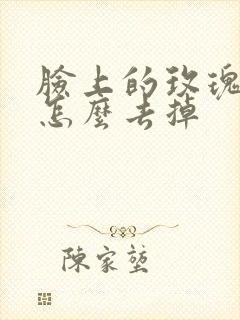 臉上的玫瑰
怎麼去掉
陳家堃